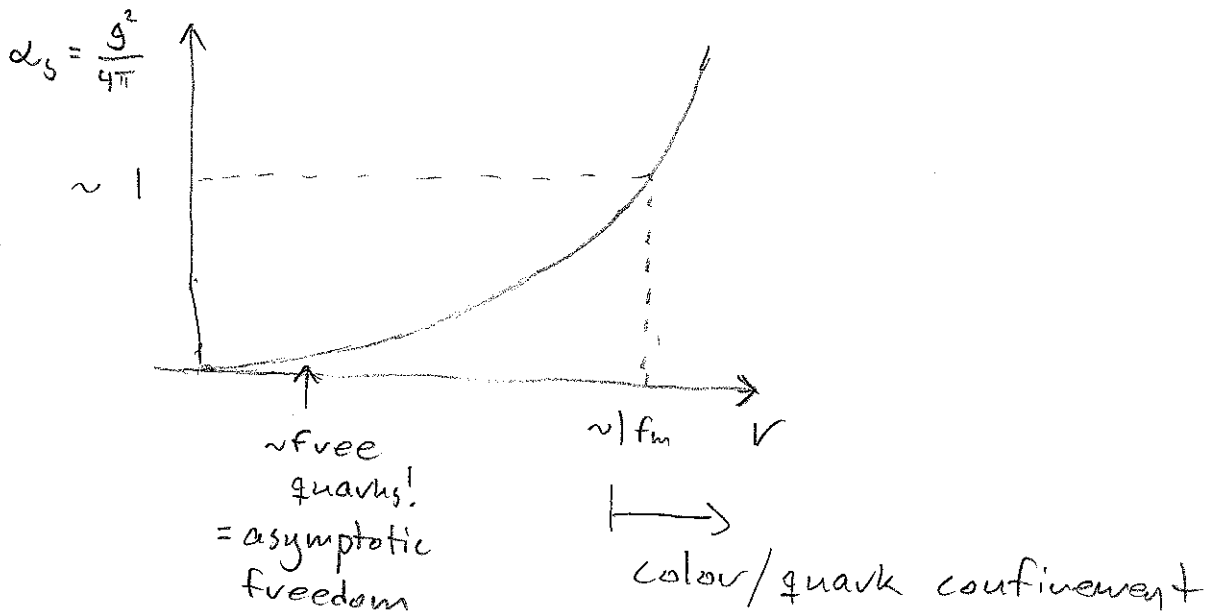 αs = g²/4π
~ 1
~1 fm
r
~free
quarks!
= asymptotic
freedom
color/quark confinement